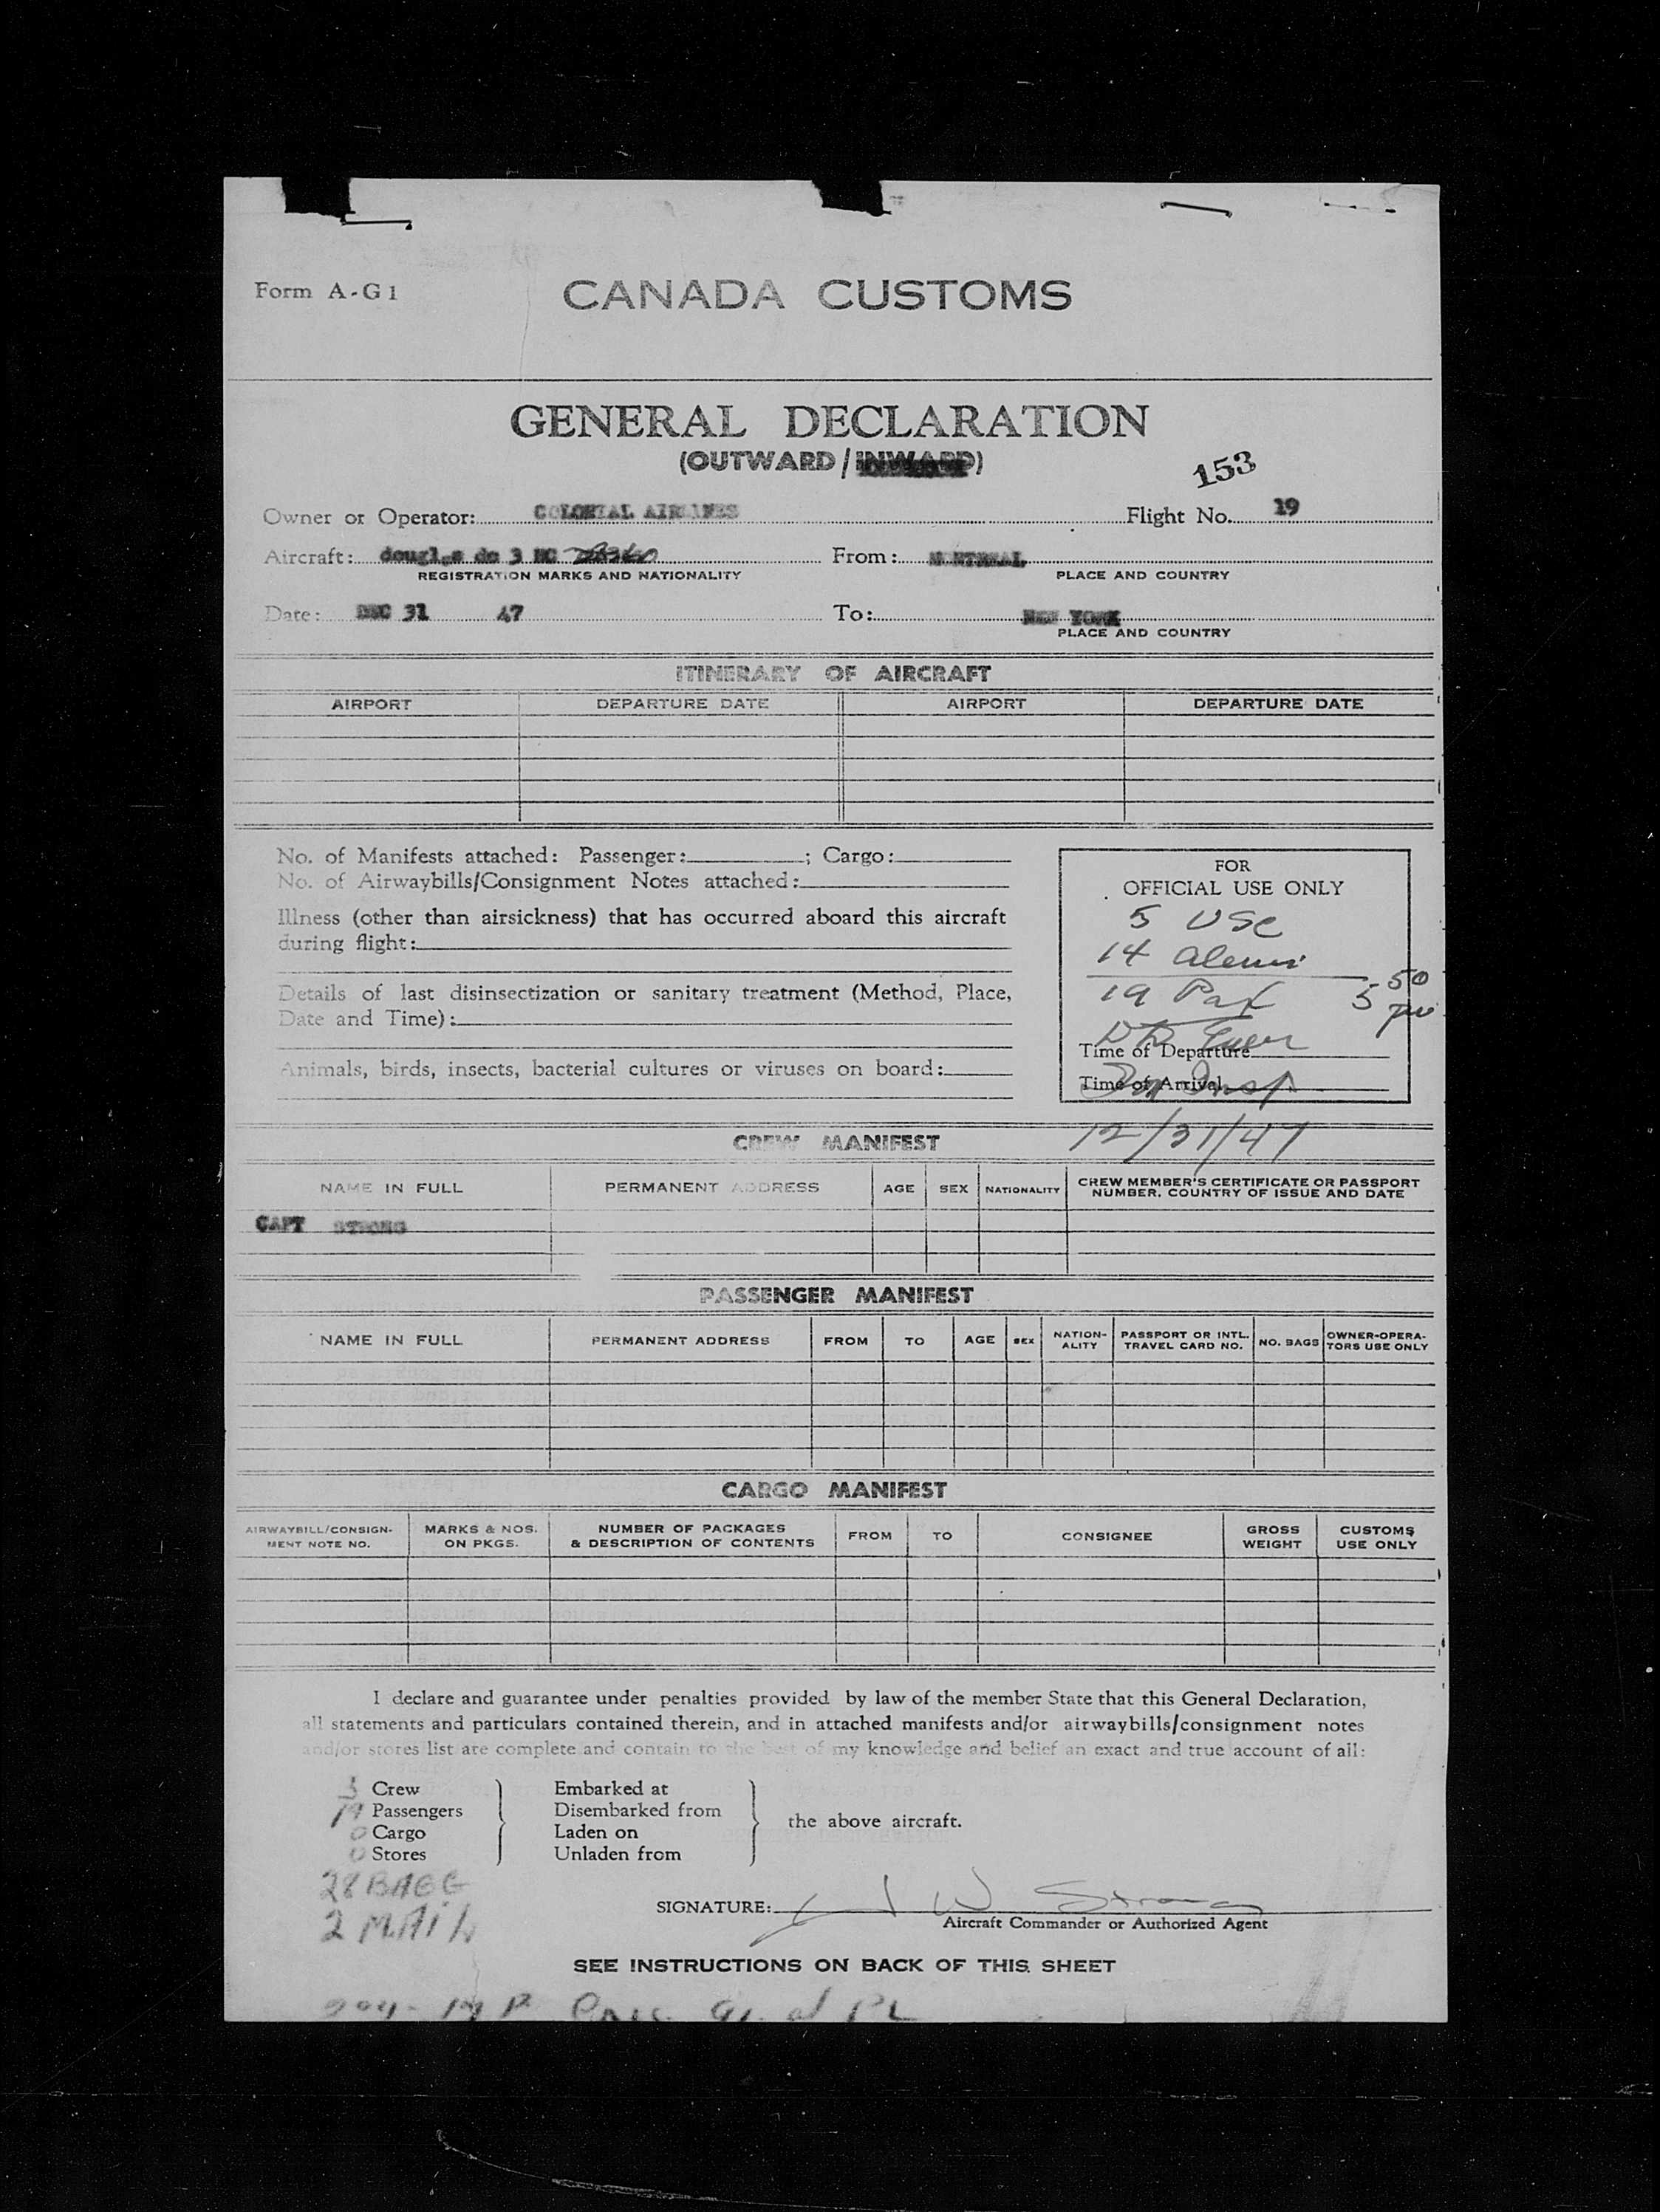 Form A-G1
CANADA CUSTOMS
GENERAL DECLARATION
(OUTWARD / INWARD)
153
Owner or Operator: COLONIAL AIRLINES Flight No. 19
Aircraft: dougl s dc 3 NC From: MONTREAL
REGISTRATION MARKS AND NATIONALITY PLACE AND COUNTRY
Date: DEC 31 47 To: NEW YORK
PLACE AND COUNTRY
ITINERARY OF AIRCRAFT
AIRPORT DEPARTURE DATE AIRPORT DEPARTURE DATE
No. of Manifests attached: Passenger: ; Cargo:
No. of Airwaybills/Consignment Notes attached:
Illness (other than airsickness) that has occurred aboard this aircraft
during flight:
Details of last disinsectization or sanitary treatment (Method, Place,
Date and Time):
Animals, birds, insects, bacterial cultures or viruses on board:
FOR
OFFICIAL USE ONLY
5 USC
14 aliens
19 Pax
50
5
Time of Departure
Time of Arrival
12/31/47
CREW MANIFEST
NAME IN FULL PERMANENT ADDRESS AGE SEX NATIONALITY CREW MEMBER'S CERTIFICATE OR PASSPORT
NUMBER, COUNTRY OF ISSUE AND DATE
CAPT STRONG
PASSENGER MANIFEST
NAME IN FULL PERMANENT ADDRESS FROM TO AGE SEX NATION-
ALITY PASSPORT OR INTL.
TRAVEL CARD NO. NO. BAGS OWNER-OPERA-
TORS USE ONLY
CARGO MANIFEST
AIRWAYBILL/CONSIGN-
MENT NOTE NO. MARKS & NOS.
ON PKGS. NUMBER OF PACKAGES
& DESCRIPTION OF CONTENTS FROM TO CONSIGNEE GROSS
WEIGHT CUSTOMS
USE ONLY
I declare and guarantee under penalties provided by law of the member State that this General Declaration,
all statements and particulars contained therein, and in attached manifests and/or airwaybills/consignment notes
and/or stores list are complete and contain to the best of my knowledge and belief an exact and true account of all:
3 Crew Embarked at
19 Passengers Disembarked from
the above aircraft.
0 Cargo Laden on
0 Stores Unladen from
28 BAGG
2 MAIL
SIGNATURE: J W Strong
Aircraft Commander or Authorized Agent
SEE INSTRUCTIONS ON BACK OF THIS SHEET